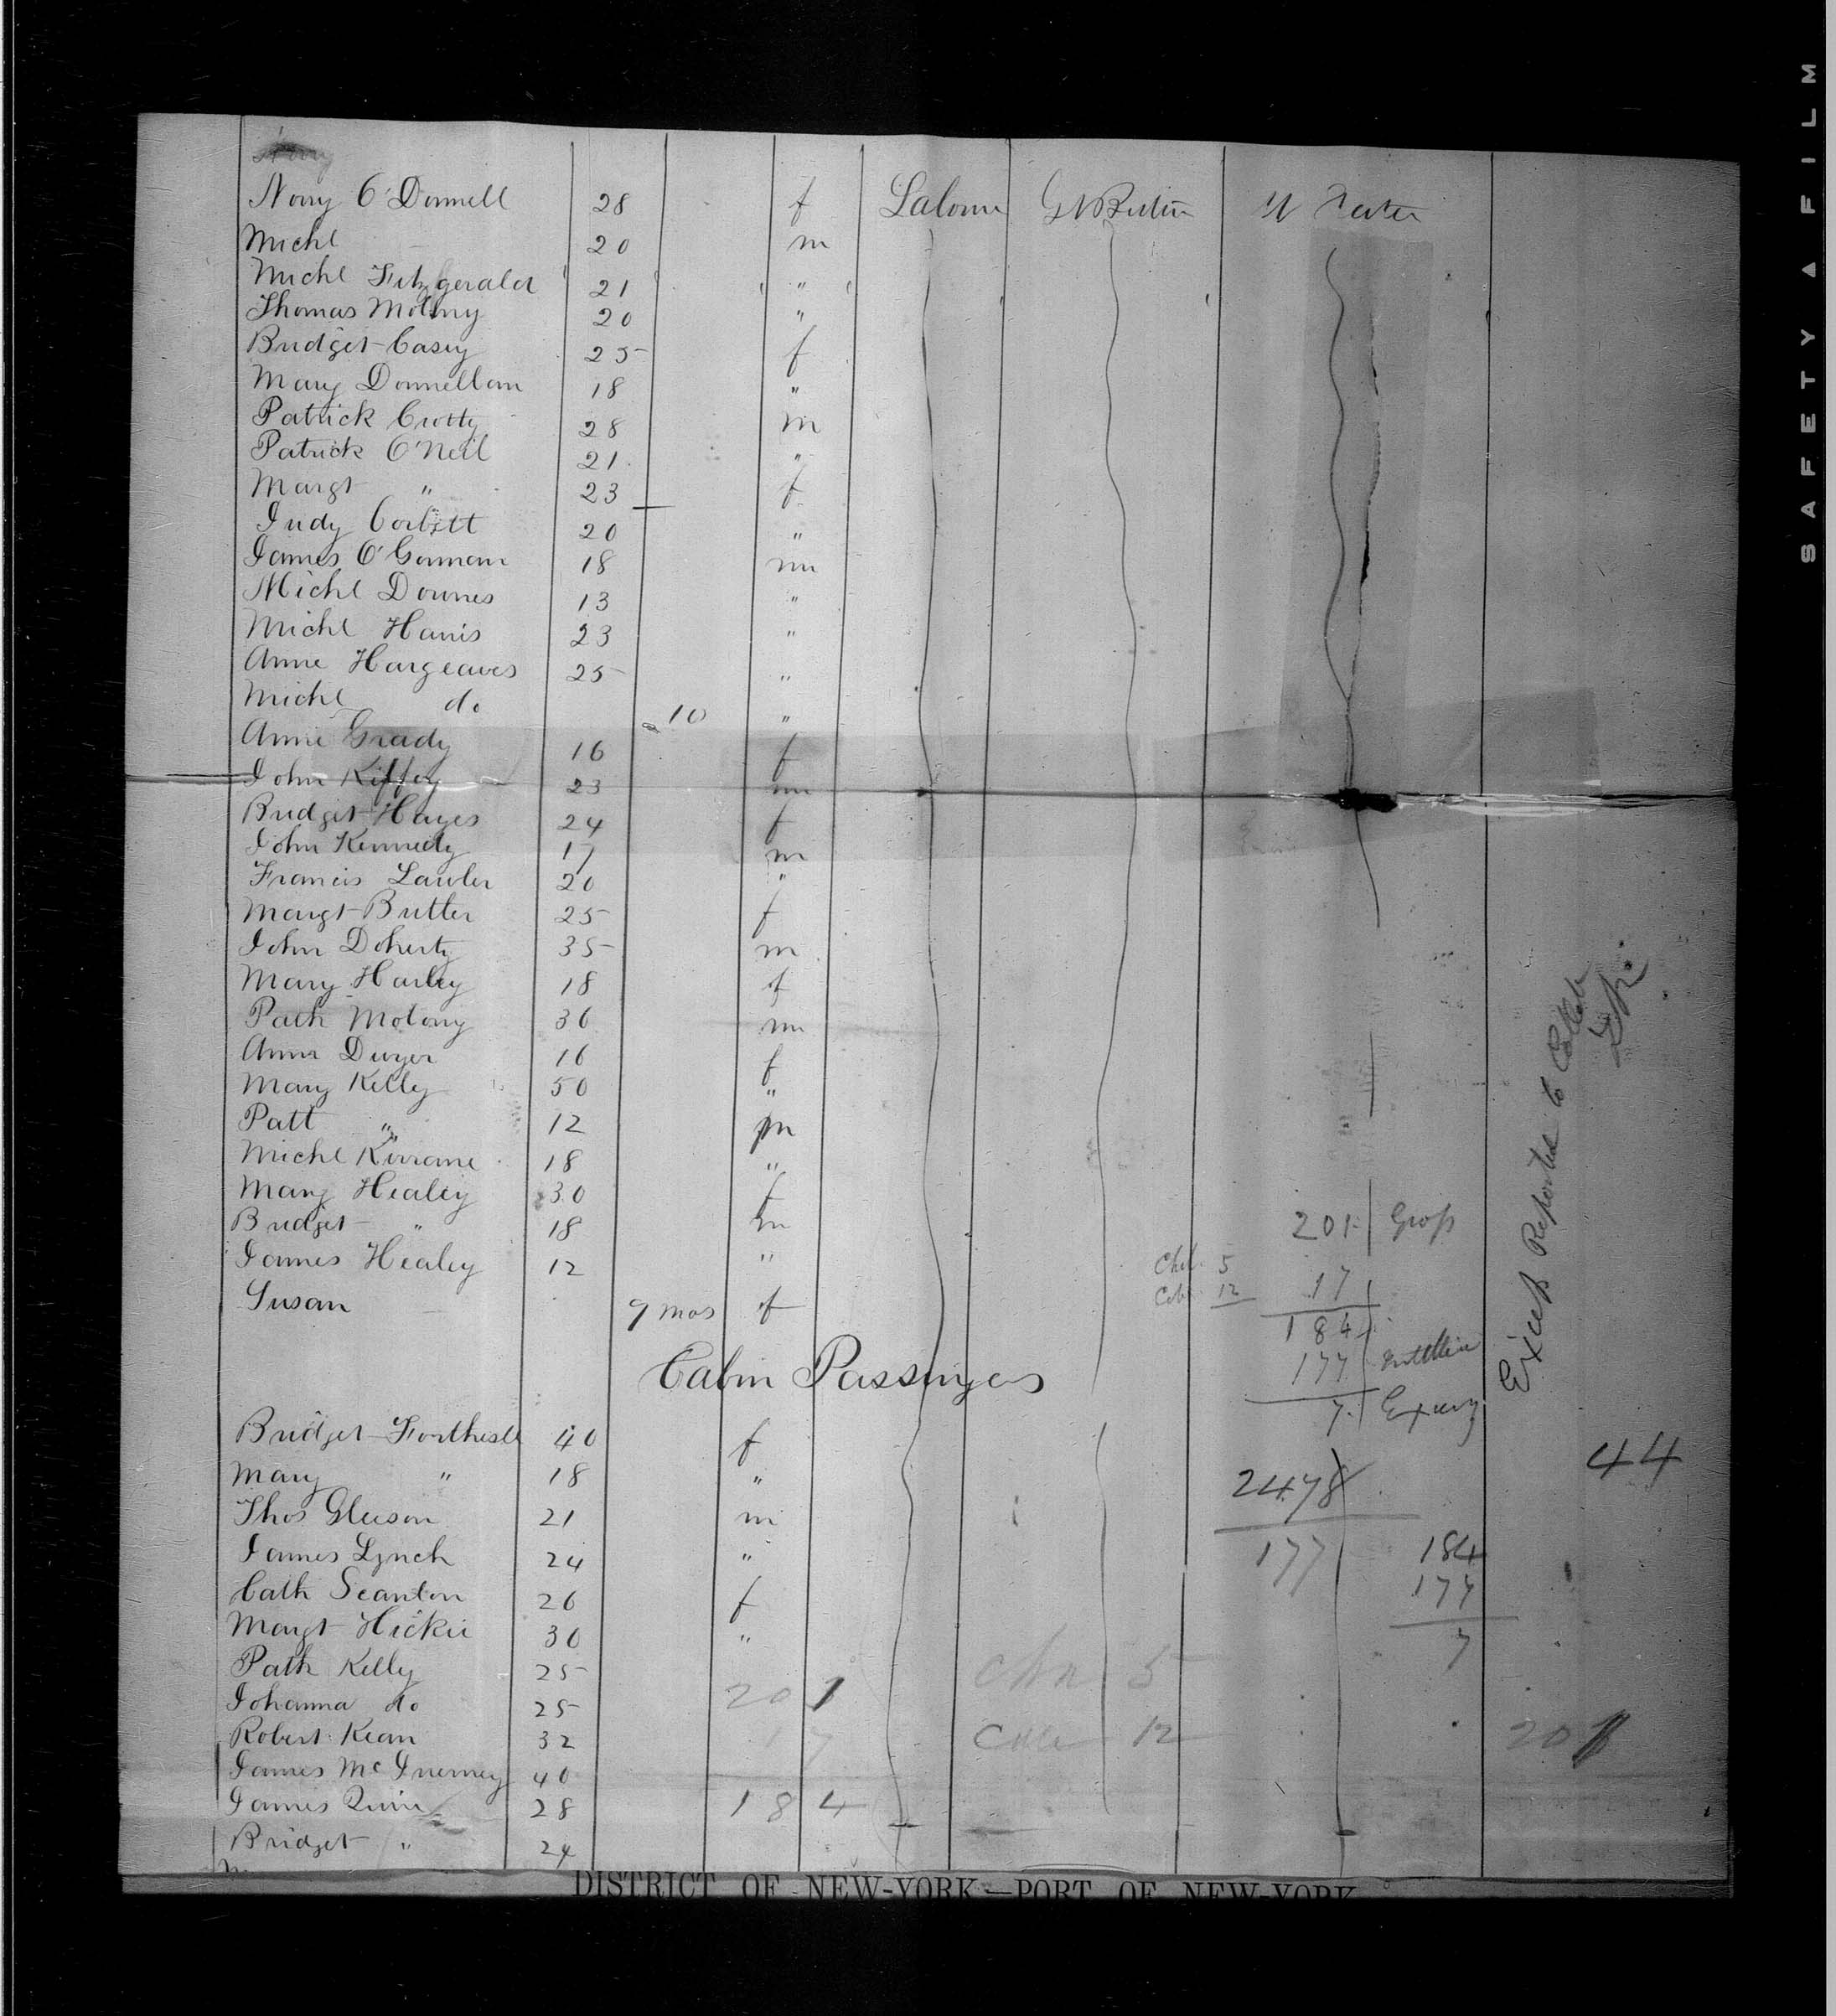 Norry O'Donnell 28 f Labour Gt Britn U States
Michl 20 m
Michl Fitzgerald 21 "
Thomas Molony 20 "
Bridget Casey 25 f
Mary Donnellan 18 "
Patrick Crotty 28 m
Patrick O'Neil 21 "
Margt " 23 f
Judy Corbett 20 "
James O'Gorman 18 m
Michl Downes 13 "
Michl Harris 23 "
Anne Hargeaves 25 "
Michl do 10 "
Anne Grady 16 f
John Kiffey 23 m
Bridget Hayes 24 f
John Kennedy 17 m
Francis Lawler 20 "
Margt Butler 25 f
John Doherty 35 m
Mary Hurley 18 f
Patk Molony 36 m
Anna Dwyer 16 f
Mary Kelly 50 "
Patt " 12 m
Michl Kirrane 18 "
Mary Healey 30 f
Bridget " 18 m
James Healey 12 "
Susan 9 mos f
201 Gross
Chil. 5
12
17
184
177
7
Excess Reported to
Cabin Passengers
44
Bridget 40 f
Mary " 18 "
2478
Thos Gleeson 21 m
James Lynch 24 "
177
184
177
7
Cath Scanlon 26 f
Margt Hickie 30 "
Patk Kelly 25
Johanna do 25
201
Chn 5
Robert Kean 32
17
12
201
James McInerney 40
James Quin 28
184
Bridget " 24
DISTRICT OF NEW-YORK—PORT OF NEW-YORK
SAFETY A FILM